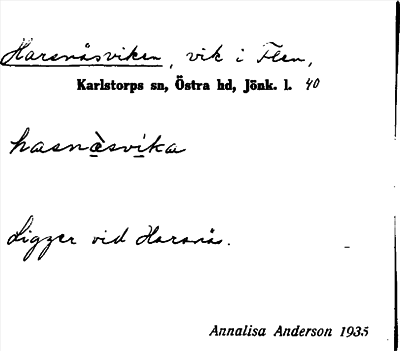 Harsnäsviken, vik i Flen,
Karlstorps sn, Östra hd, Jönk. l. 40
hasnèsvika
Ligger vid Harsnäs.
Annalisa Anderson 1935